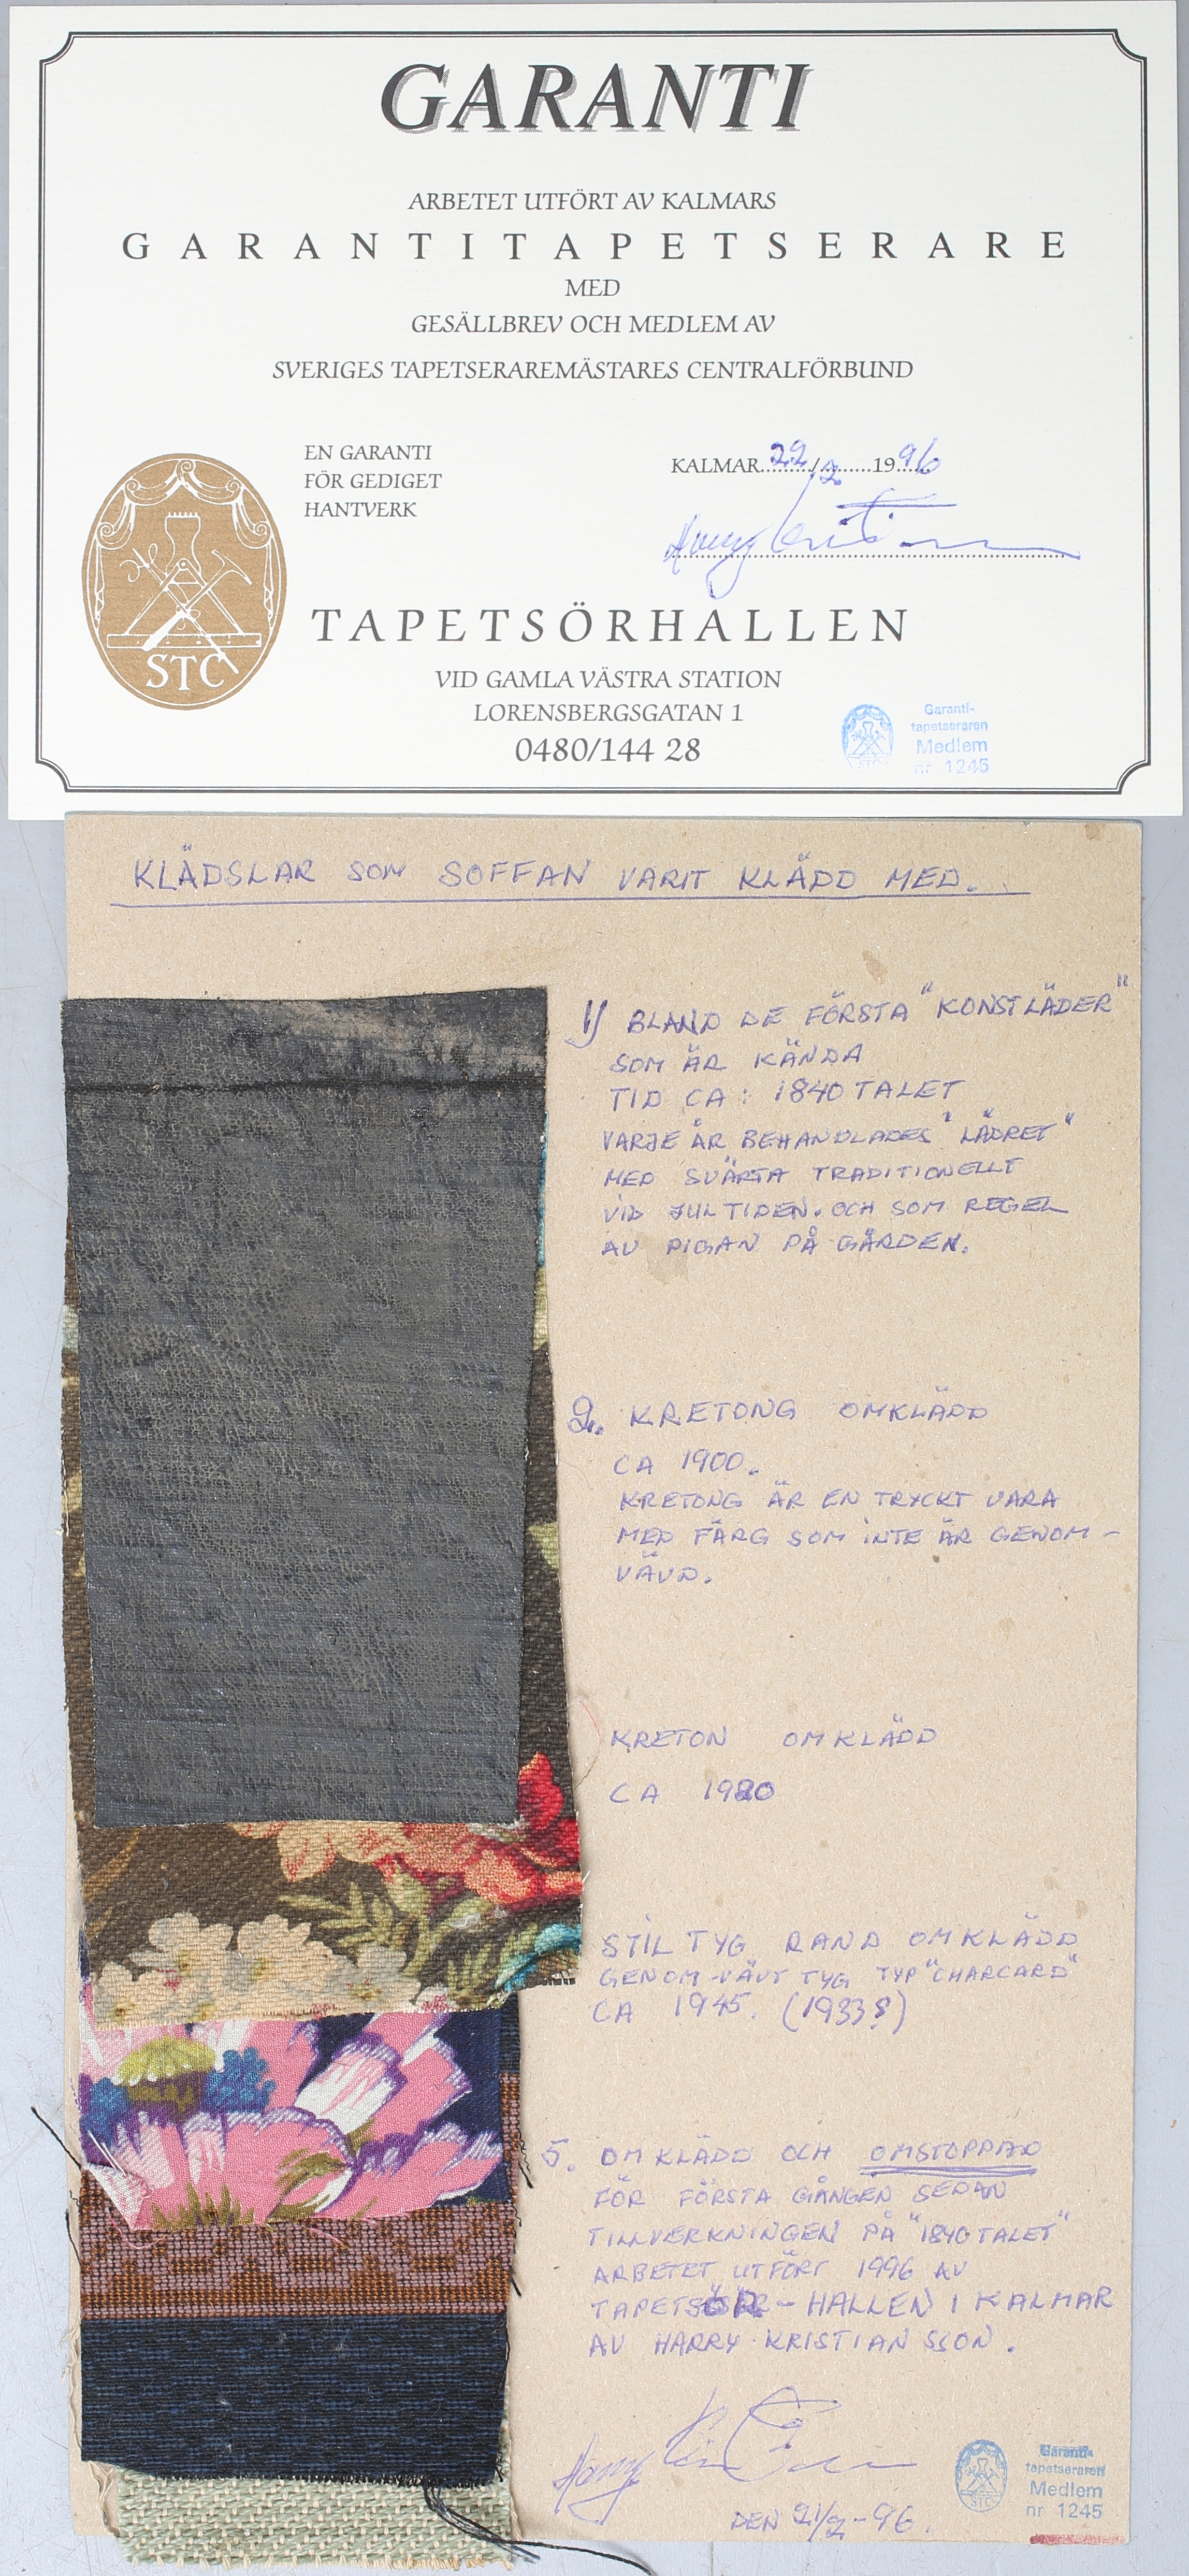 GARANTI
ARBETET UTFÖRT AV KALMARS
GARANTITAPETSERARE
MED
GESÄLLBREV OCH MEDLEM AV
SVERIGES TAPETSERAREMÄSTARES CENTRALFÖRBUND
EN GARANTI
FÖR GEDIGET
HANTVERK
KALMAR 22/2 1996
STC
TAPETSÖRHALLEN
VID GAMLA VÄSTRA STATION
LORENSBERGSGATAN 1
0480/144 28
Garanti-
tapetseraren
Medlem
nr 1245
STC
KLÄDSLAR SOM SOFFAN VARIT KLÄDD MED.
1) BLAND DE FÖRSTA "KONSTLÄDER"
SOM ÄR KÄNDA
TID CA: 1840 TALET
VARJE ÅR BEHANDLADES "LÄDRET"
MED SVÄRTA TRADITIONELLT
VID JULTIDEN. OCH SOM REGEL
AV PIGAN PÅ GÅRDEN.
2. KRETONG OMKLÄDD
CA 1900.
KRETONG ÄR EN TRYCKT VARA
MED FÄRG SOM INTE ÄR GENOM-
VÄVD.
KRETON OMKLÄDD
CA 1920
STIL TYG RAND OMKLÄDD
GENOM-VÄVT TYG TYP "CHARCARD"
CA 1945. (1933?)
5. OMKLÄDD OCH OMSTOPPAD
FÖR FÖRSTA GÅNGEN SEDAN
TILLVERKNINGEN PÅ "1840 TALET"
ARBETET UTFÖRT 1996 AV
TAPETSÖR-HALLEN I KALMAR
AV HARRY KRISTIANSSON.
DEN 21/2-96.
Garanti-
tapetseraren
Medlem
nr 1245
STC